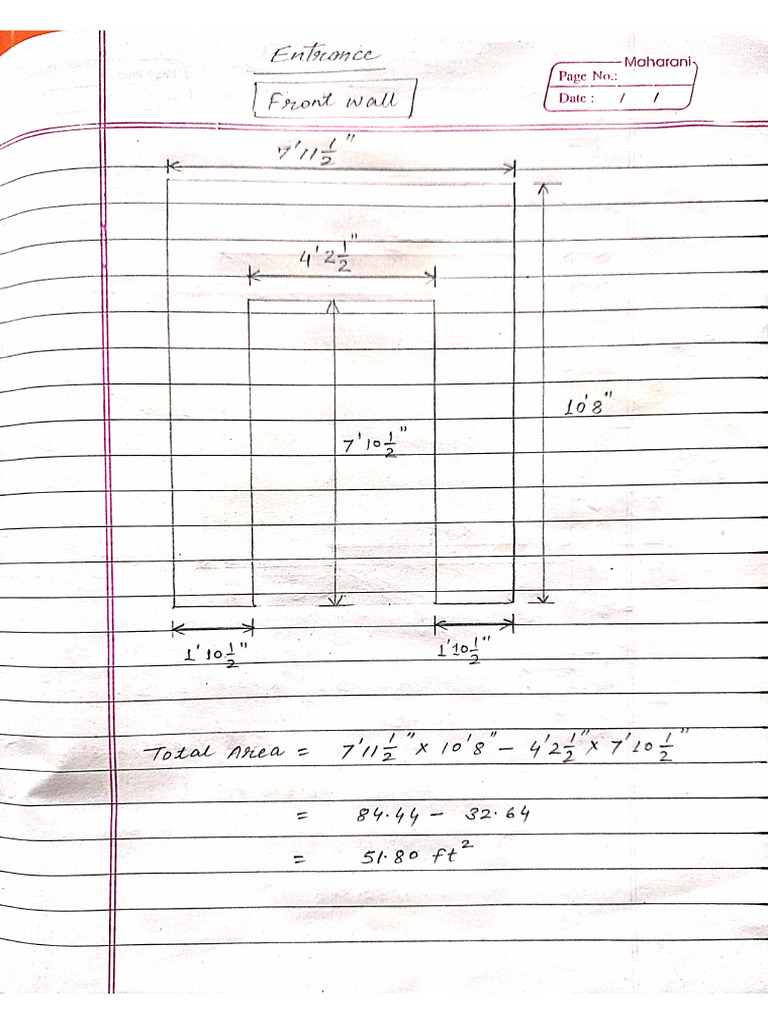 Entrance
Maharani
Page No.:
Front Wall
Date : / /
7'11½"
4'2½"
10'8"
7'10½"
1'10½" 1'10½"
Total Area = 7'11½" × 10'8" − 4'2½" × 7'10½"
= 84.44 − 32.64
= 51.80 ft²